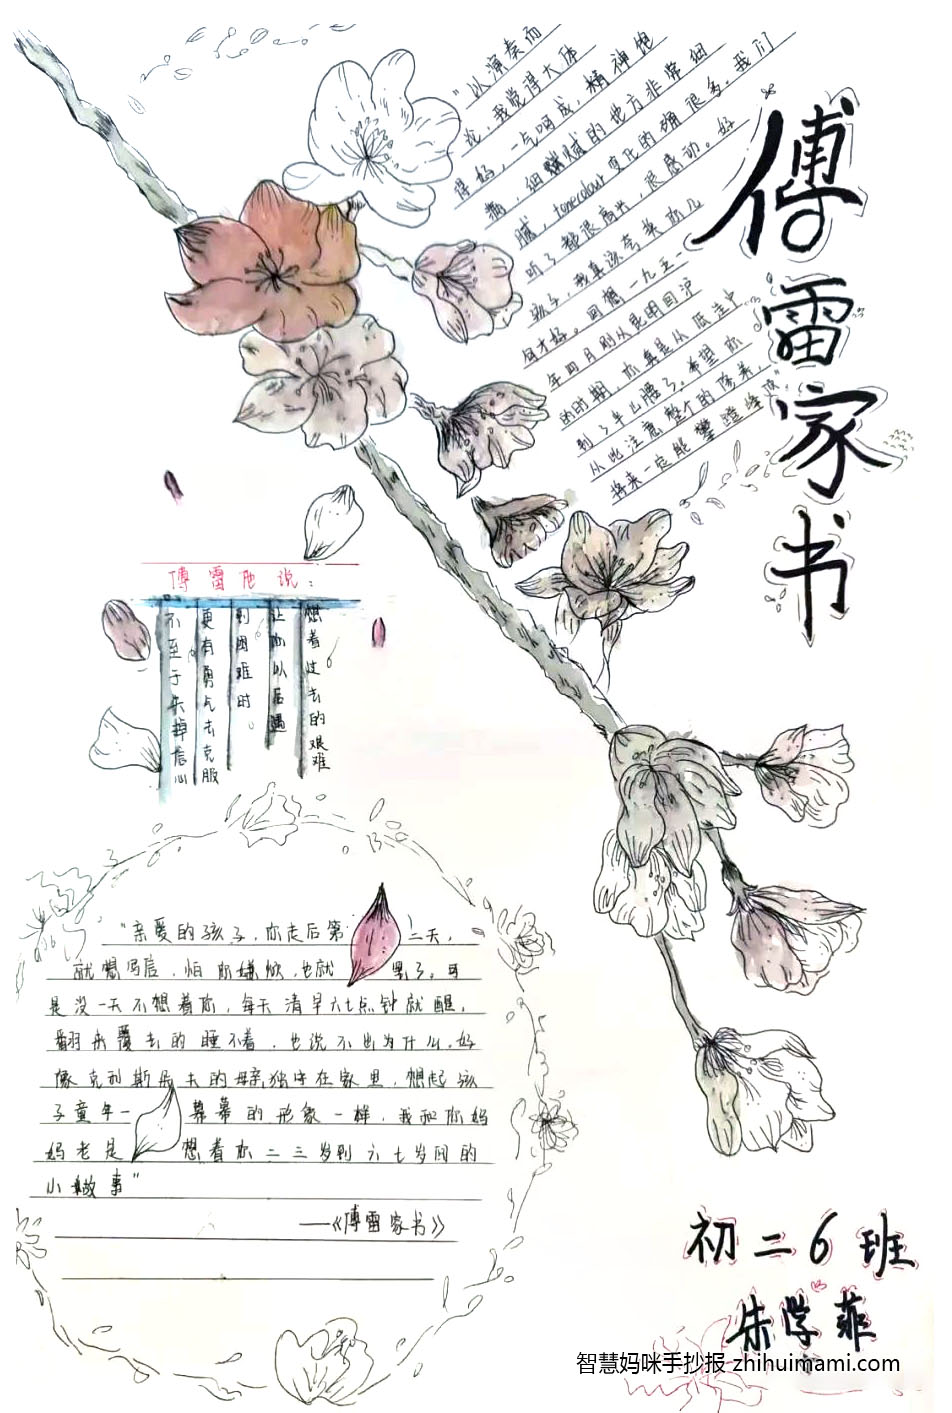 傅雷家书
"以演奏而
论，我觉得大体
很好，一气呵成，精神饱
满，细腻的地方非常细
腻，tonecolour变化的确很多。我们
听了都很高兴，很感动。好
孩子，我真该夸奖你几
句才好。回想一九五一
年四月刚从昆明回沪
的时期，你真是从低洼中
到了半山腰了。希望你
从此注意整个的修养，
将来一定能攀登峰顶"
傅雷他说：
想着过去的艰难
让你以后遇
到困难时。
更有勇气去克服
不至于失掉信心
"亲爱的孩子，你走后第二天，
就想写信，怕你嫌烦，也就罢了。可
是没一天不想着你，每天清早六七点钟就醒，
翻来覆去的睡不着，也说不出为什么。好
像克利斯朵夫的母亲独守在家里，想起孩
子童年一幕幕的形象一样，我和你妈
妈老是想着你二三岁到六七岁间的
小故事"
——《傅雷家书》
初二6班
朱学菲
智慧妈咪手抄报 zhihuimami.com